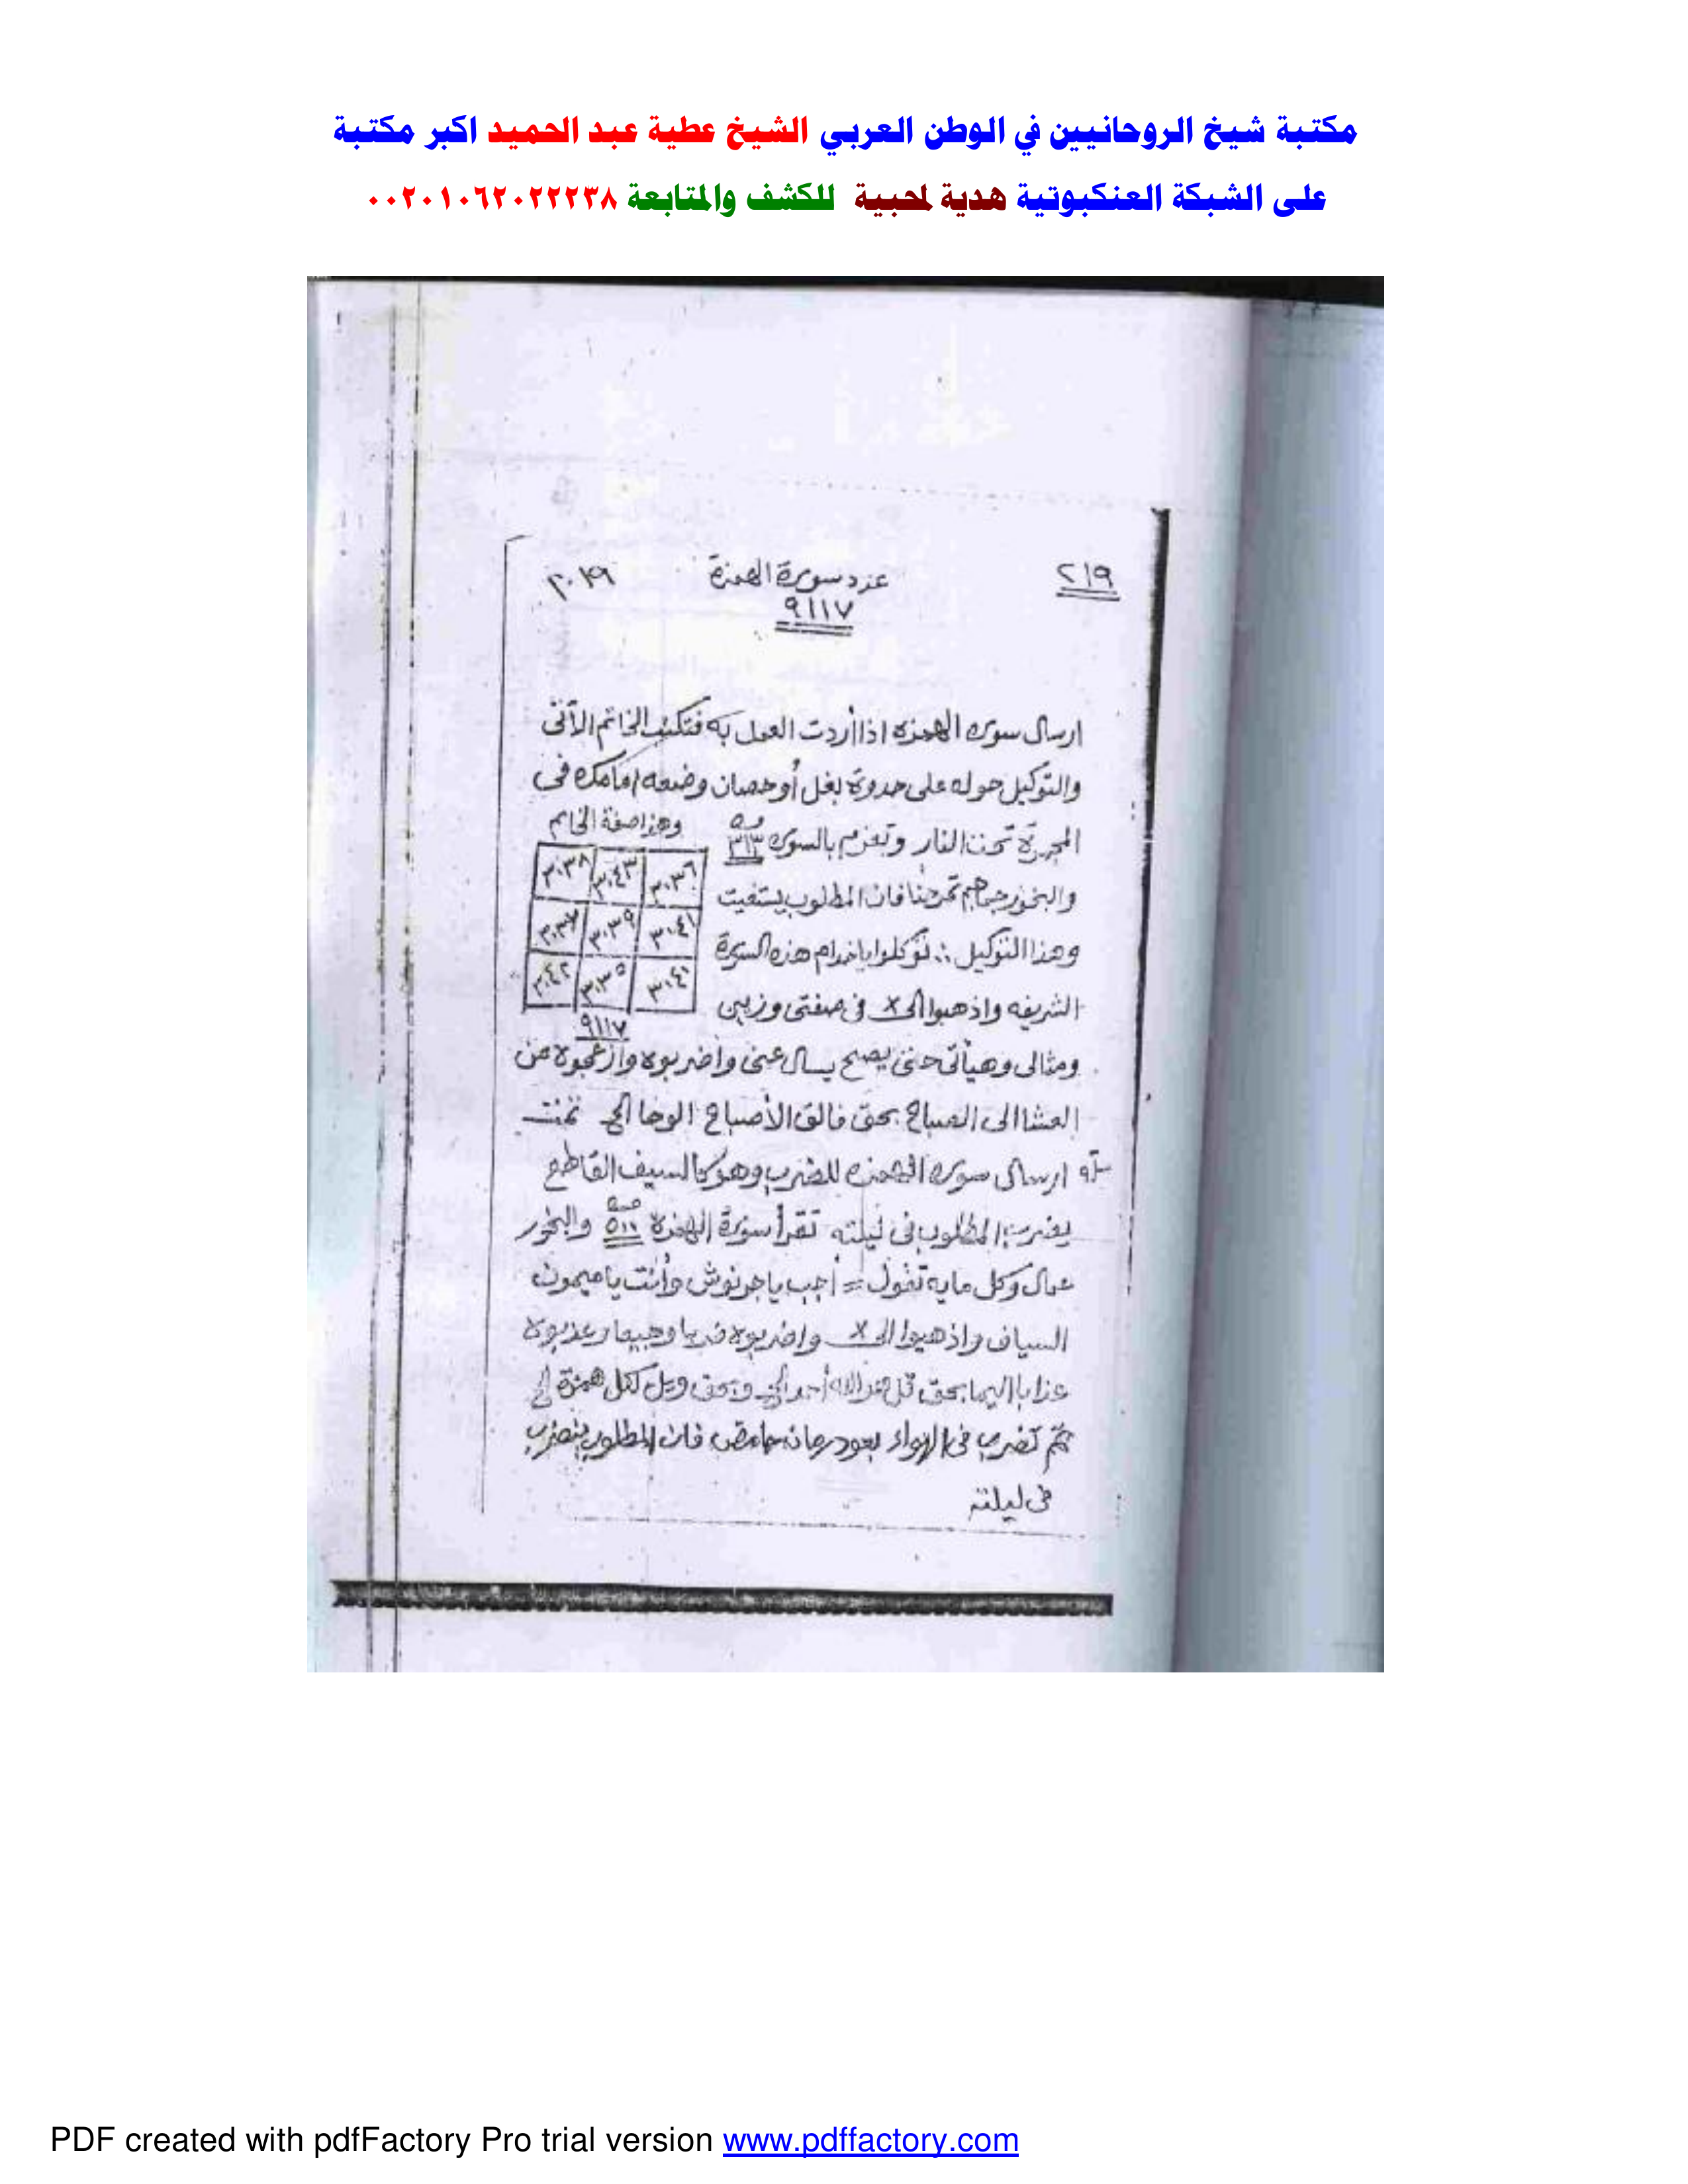 مكتبة شيخ الروحانيين في الوطن العربي الشيخ عطية عبد الحميد اكبر مكتبة
على الشبكة العنكبوتية هدية لمحبية للكشف والمتابعة ٠٠٢٠١٠٦٢٠٢٢٢٣٨
٢١٩ عدد سورة الهمزة
٩١١٧
ارسال سوره الهمزه اذا أردت العمل به فتكتب الخاتم الآتى
والتوكيل حوله على حدوة بغل أو حصان وضعه امامك فى
المجمرة تحت النار وتعزم بالسوره ٣١٣ مره وهذا صفة الخاتم
والبخور فان المطلوب يستغيت
وهذا التوكيل ∴ توكلوا ياخدام هذه السورة
الشريفه واذهبوا الى x فى صفتى وزيى
٣٠٣٦ ٣٠٤٣ ٣٠٣٨
٣٠٤١ ٣٠٣٩ ٣٠٣٧
٣٠٤٠ ٣٠٣٥ ٣٠٤٢
٩١١٧
ومثالى وهيأتى حتى يصح يسال عنى واضربوه وازعجوه من
العشا الى الصباح بحق فالق الأصباح الوحا الخ تمت
ارسال سوره الهمزه للضرب وهو كالسيف القاطع
يضرب المطلوب فى ليلته تقرأ سورة الهمزة ٥١١ مره والبخور
عمال وكل مايه تقول = أجب يا جرنوش وأنت يا ميمون
السياف واذهبوا الى x واضربوه ضربا وجيعا وعذبوه
عذابا اليما بحق قل هو الله أحد الخ وبحق ويل لكل همزة الخ
ثم تضرب فى الهواء بعود رمان حامض فان المطلوب ينضرب
فى ليلته
PDF created with pdfFactory Pro trial version www.pdffactory.com